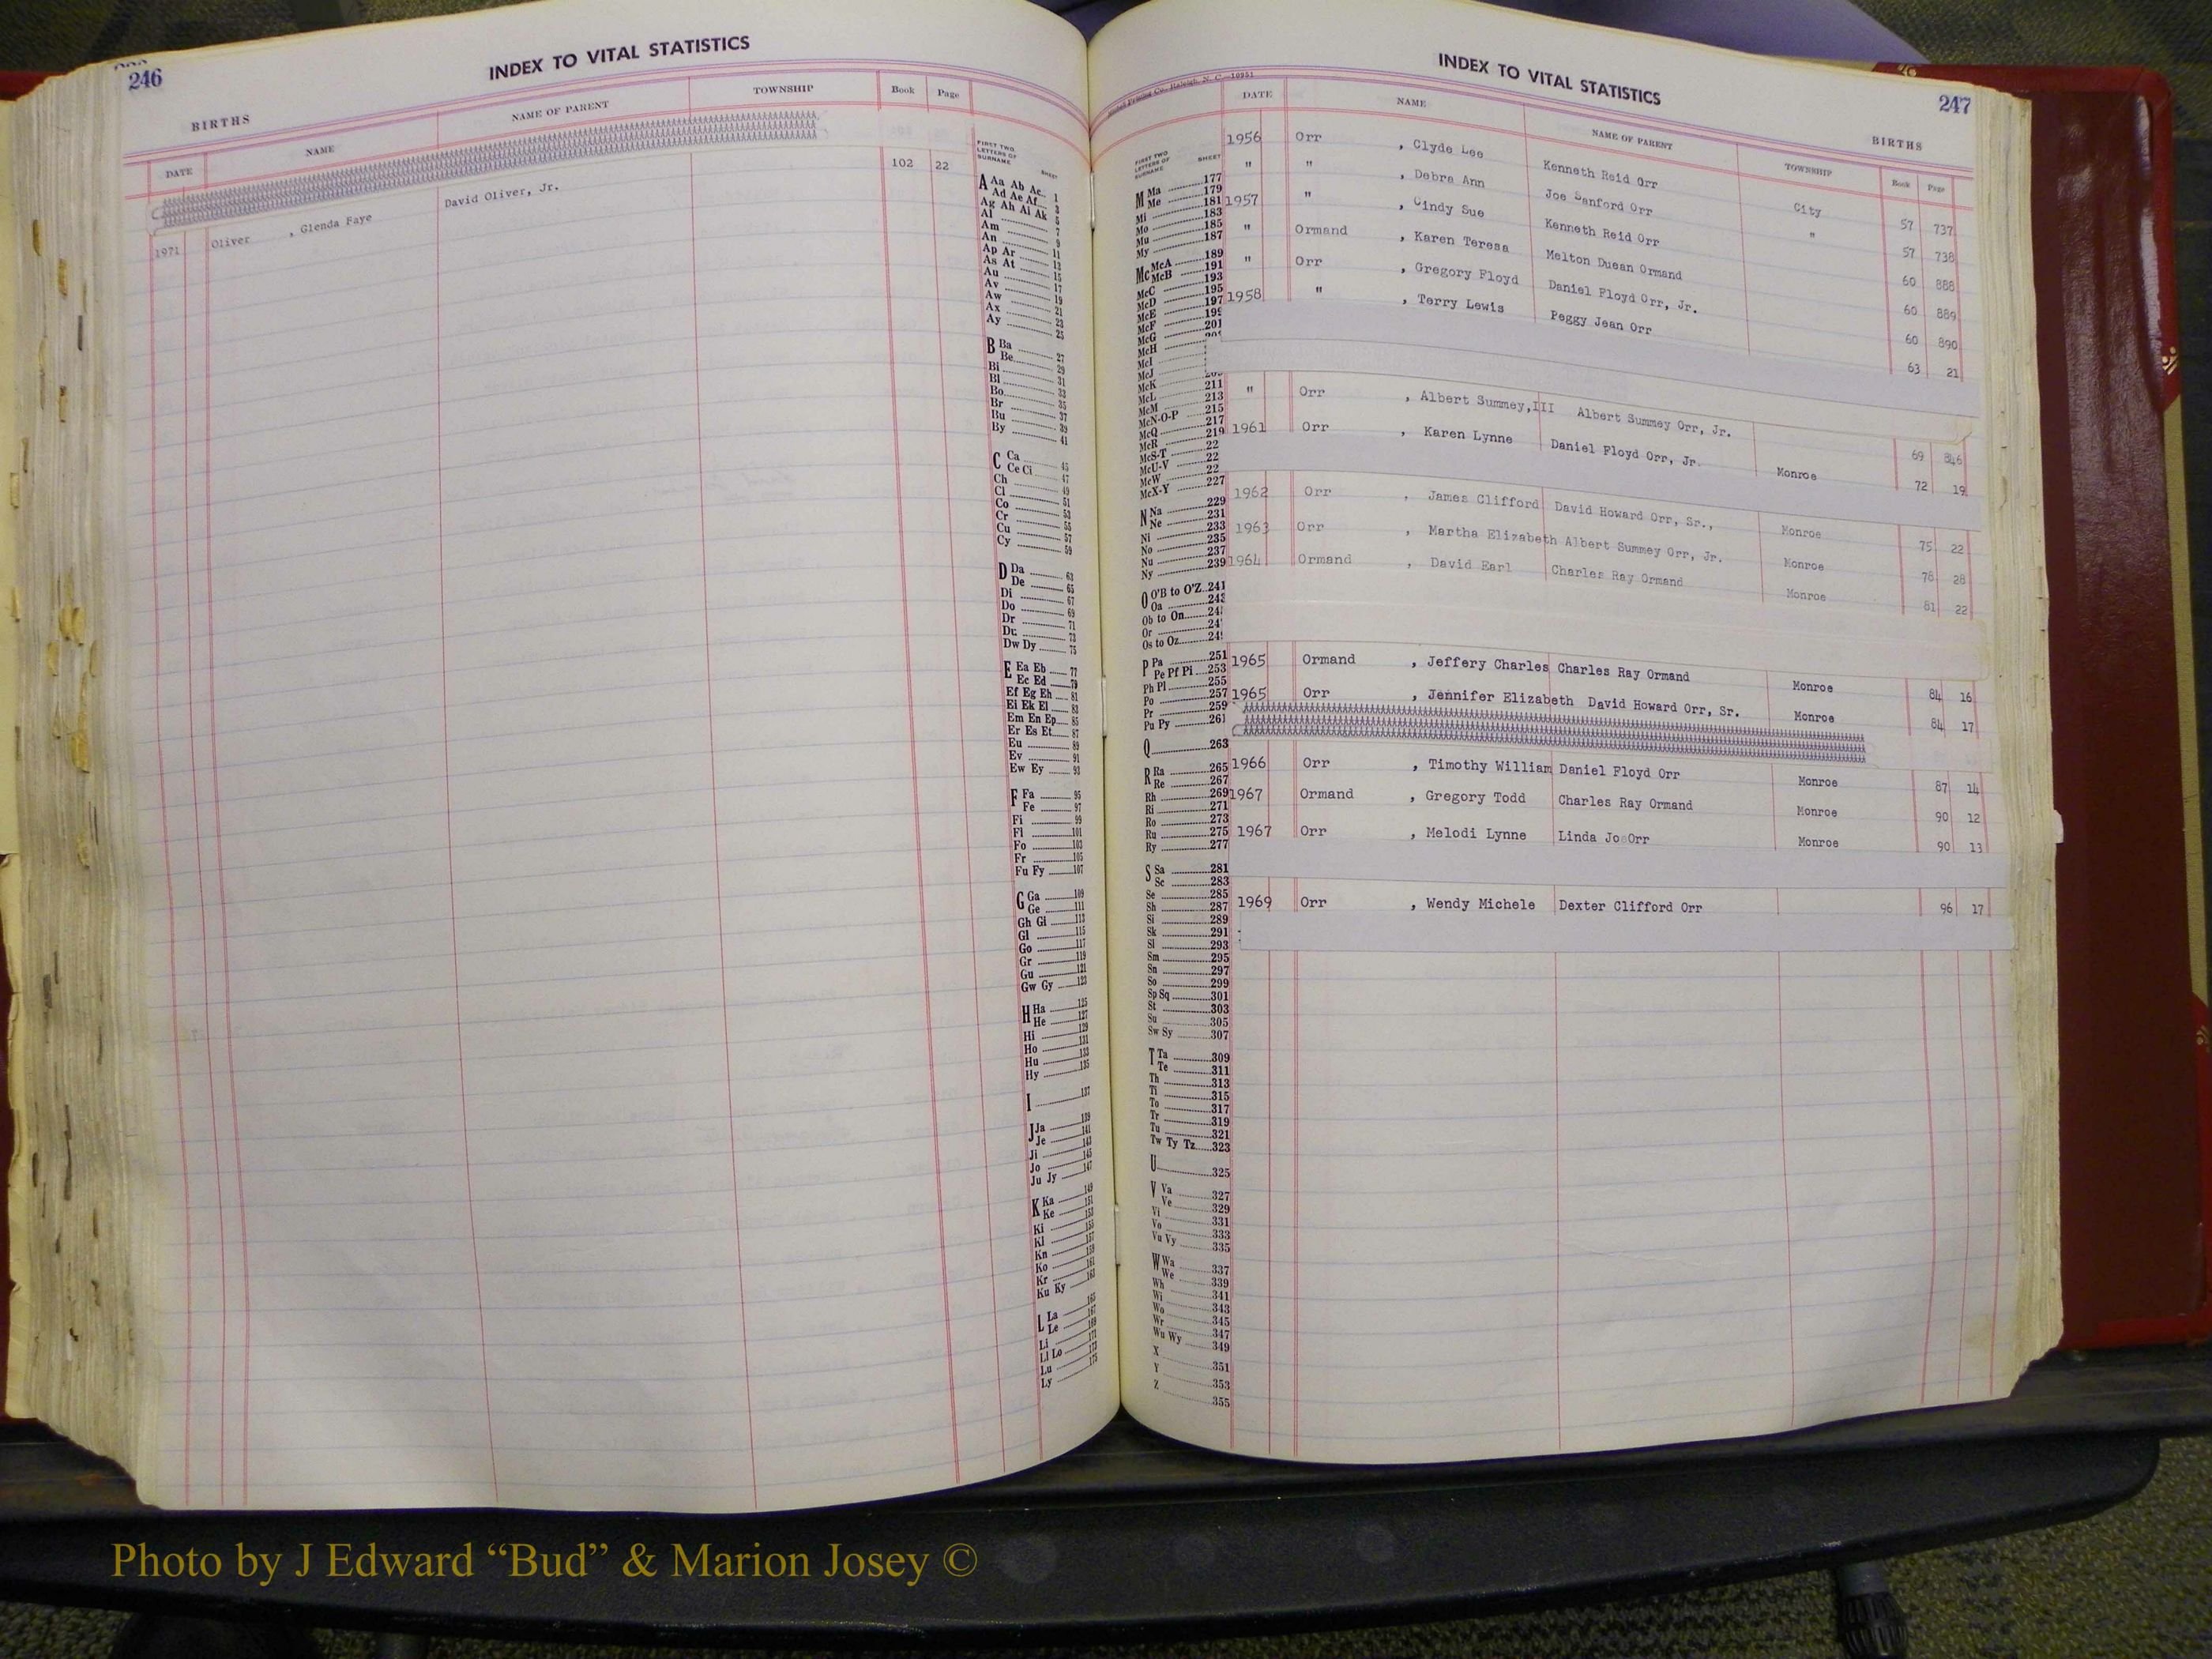 246
INDEX TO VITAL STATISTICS
BIRTHS
DATE NAME NAME OF PARENT TOWNSHIP Book Page
1971 Oliver , Glenda Faye David Oliver, Jr. 102 22
FIRST TWO LETTERS OF SURNAME SHEET
A Aa Ab Ac 1
Ad Ae Af 3
Ag Ah Ai Ak 5
Al 7
Am 9
An 11
Ap Ar 13
As At 15
Au 17
Av 19
Aw 21
Ax 23
Ay 25
B Ba 27
Be 29
Bi 31
Bl 33
Bo 35
Br 37
Bu 39
By 41
C Ca 45
Ce Ci 47
Ch 49
Cl 51
Co 53
Cr 55
Cu 57
Cy 59
D Da 63
De 65
Di 67
Do 69
Dr 71
Du 73
Dw Dy 75
E Ea Eb 77
Ec Ed 79
Ef Eg Eh 81
Ei Ek El 83
Em En Ep 85
Er Es Et 87
Eu 89
Ev 91
Ew Ey 93
F Fa 95
Fe 97
Fi 99
Fl 101
Fo 103
Fr 105
Fu Fy 107
G Ga 109
Ge 111
Gh Gi 113
Gl 115
Go 117
Gr 119
Gu 121
Gw Gy 123
H Ha 125
He 127
Hi 129
Ho 131
Hu 133
Hy 135
I 137
J Ja 139
Je 141
Ji 143
Jo 145
Ju Jy 147
K Ka 149
Ke 151
Ki 153
Kl 155
Kn 157
Ko 159
Kr 161
Ku Ky 161
L La 165
Le 167
Li 169
Ll Lo 171
Lu 173
Ly 175
INDEX TO VITAL STATISTICS
247
Printing Co., Raleigh, N. C.—10951
BIRTHS
DATE NAME NAME OF PARENT TOWNSHIP Book Page
1956 Orr , Clyde Lee Kenneth Reid Orr City 57 737
" " , Debra Ann Joe Sanford Orr " 57 738
1957 " , Cindy Sue Kenneth Reid Orr 60 888
" Ormand , Karen Teresa Melton Duean Ormand 60 889
" Orr , Gregory Floyd Daniel Floyd Orr, Jr. 60 890
1958 " , Terry Lewis Peggy Jean Orr 63 21
" Orr , Albert Summey,III Albert Summey Orr, Jr. 69 846
1961 Orr , Karen Lynne Daniel Floyd Orr, Jr. Monroe 72 19
1962 Orr , James Clifford David Howard Orr, Sr., Monroe 75 22
1963 Orr , Martha Elizabeth Albert Summey Orr, Jr. Monroe 78 28
1964 Ormand , David Earl Charles Ray Ormand Monroe 81 22
1965 Ormand , Jeffery Charles Charles Ray Ormand Monroe 84 16
1965 Orr , Jennifer Elizabeth David Howard Orr, Sr. Monroe 84 17
1966 Orr , Timothy William Daniel Floyd Orr Monroe 87 14
1967 Ormand , Gregory Todd Charles Ray Ormand Monroe 90 12
1967 Orr , Melodi Lynne Linda Jo Orr Monroe 90 13
1969 Orr , Wendy Michele Dexter Clifford Orr 96 17
FIRST TWO LETTERS OF SURNAME SHEET
M Ma 177
Me 179
Mi 181
Mo 183
Mu 185
My 187
Mc McA 189
McB 191
McC 193
McD 195
McE 197
McF
McG 201
McH
McI
McJ
McK 211
McL 213
McM 215
McN-O-P 217
McQ 219
McR
McS-T
McU-V
McW
McX-Y 227
N Na 229
Ne 231
Ni 233
No 235
Nu 237
Ny 239
O O'B to O'Z 241
Oa
Ob to On
Or
Os to Oz
P Pa 251
Pe Pf Pi 253
Ph Pl 255
Po 257
Pr 259
Pu Py 261
Q 263
R Ra 265
Re 267
Rh 269
Ri 271
Ro 273
Ru 275
Ry 277
S Sa 281
Sc 283
Se 285
Sh 287
Si 289
Sk 291
Sl 293
Sm 295
Sn 297
So 299
Sp Sq 301
St 303
Su 305
Sw Sy 307
T Ta 309
Te 311
Th 313
Ti 315
To 317
Tr 319
Tu 321
Tw Ty Tz 323
U 325
V Va 327
Ve 329
Vi 331
Vo 333
Vu Vy 335
W Wa 337
We 339
Wh 341
Wi 343
Wo 345
Wr 347
Wu Wy 349
X 351
Y 353
Z 355
Photo by J Edward “Bud” & Marion Josey ©